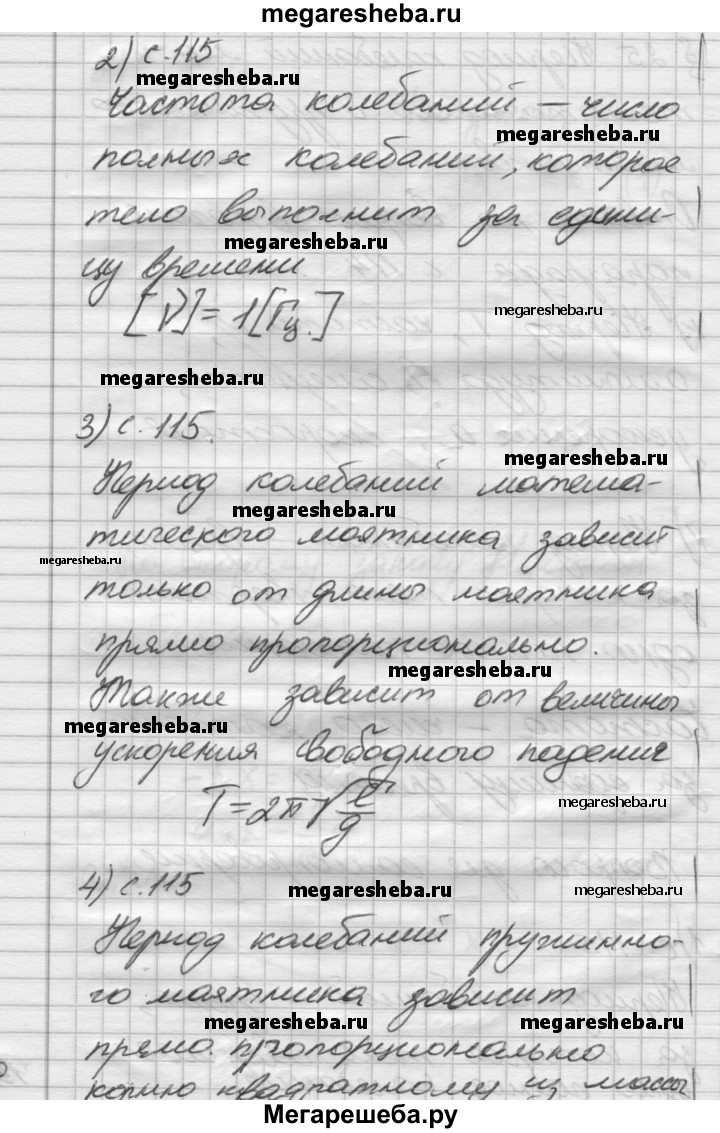 megaresheba.ru
2) с.115
megaresheba.ru
Частота колебаний — число
megaresheba.ru
полных колебаний, которое
тело выполнит за едини-
megaresheba.ru
цу времени
[ν]=1[Гц.]
megaresheba.ru
megaresheba.ru
3) с.115.
megaresheba.ru
Период колебаний матема-
megaresheba.ru
тического маятника зависит
megaresheba.ru
только от длины маятника
прямо пропорционально.
megaresheba.ru
Также зависит от величины
megaresheba.ru
ускорения свободного падения
T=2π√l/g
megaresheba.ru
4) с.115
megaresheba.ru
megaresheba.ru
Период колебаний пружинно-
го маятника зависит
megaresheba.ru
megaresheba.ru
прямо пропорционально
корню квадратному из массы
Мегарешеба.ру